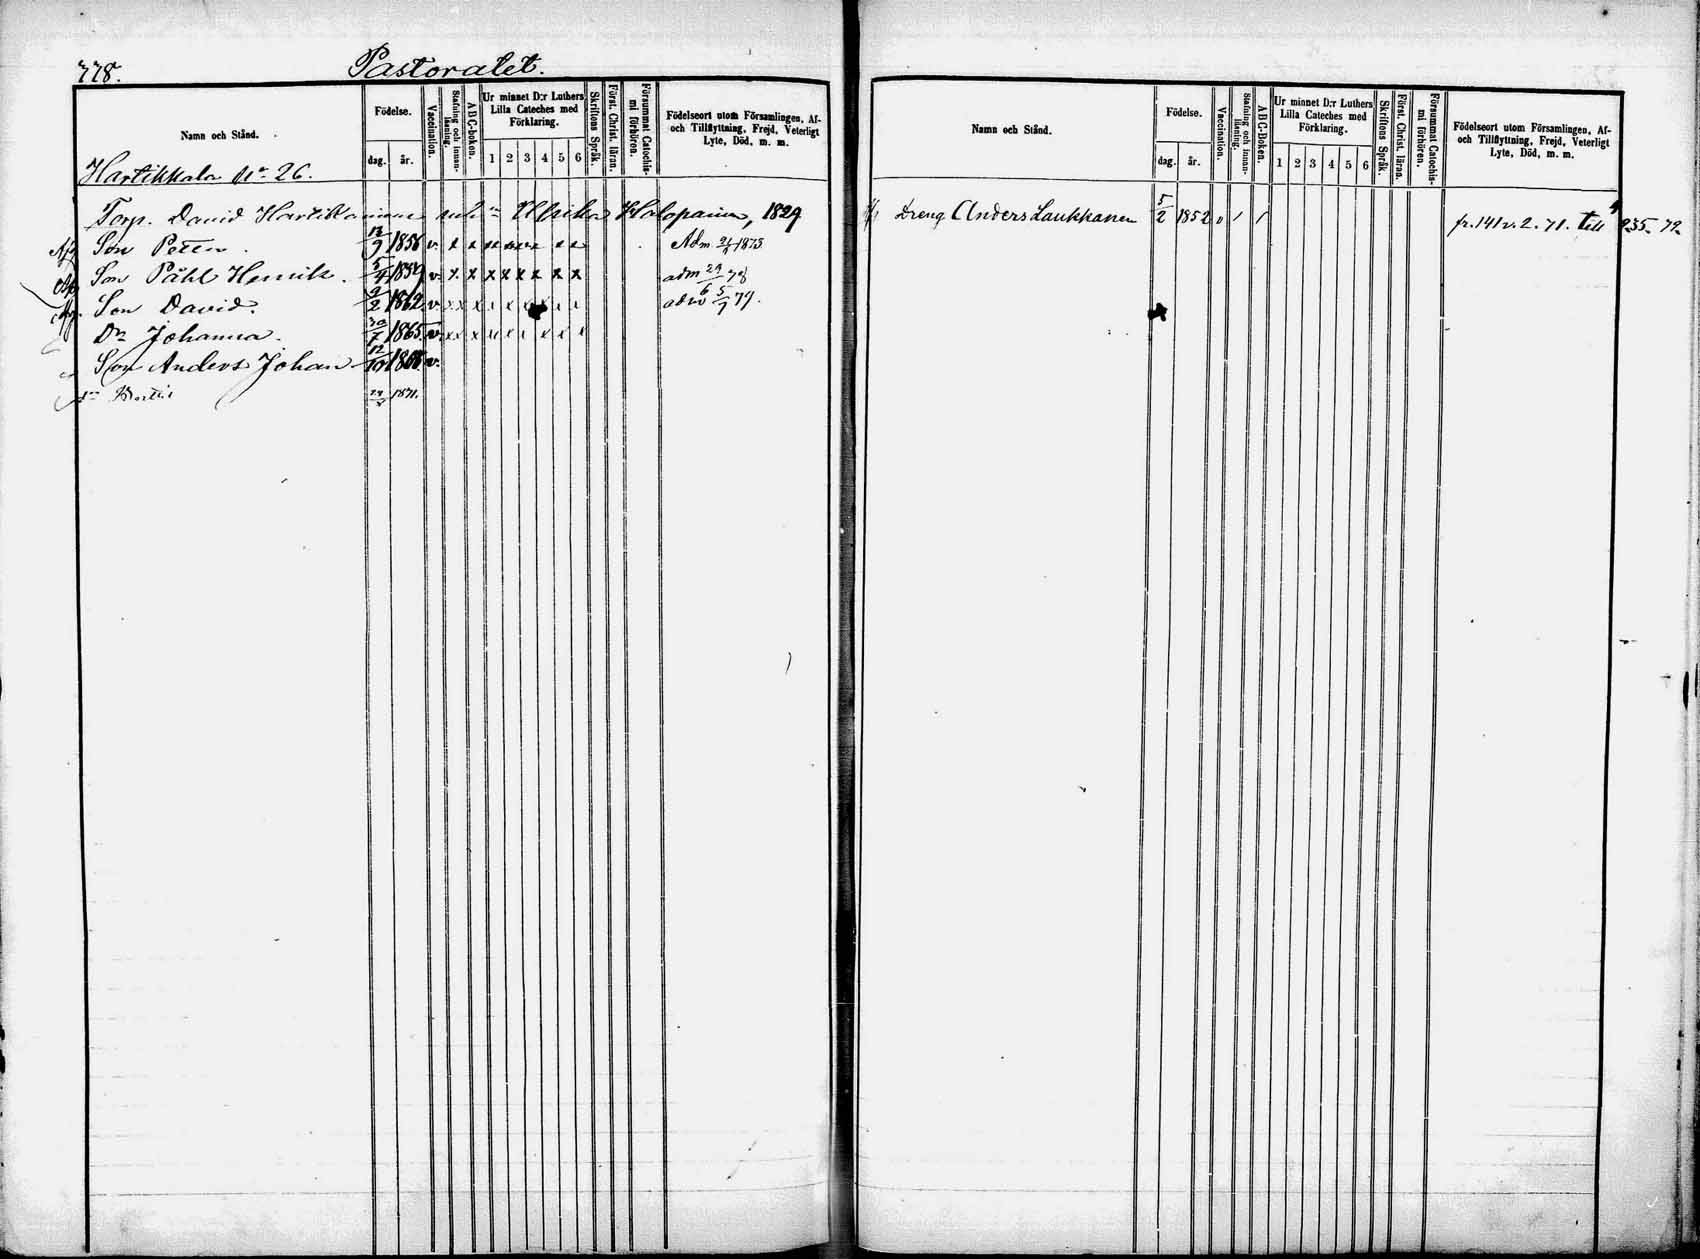 778.
Pastoratet.
Namn och Stånd.
Födelse.
dag.
år.
Vaccination.
Stafning och innanläsning.
ABC-boken.
Ur minnet D:r Luthers Lilla Cateches med Förklaring.
1 2 3 4 5 6
Skriftens Språk.
Först. Christ. läran.
Försummat Catechismi förhören.
Födelseort utom Församlingen, Af- och Tillflyttning, Frejd, Veterligt Lyte, Död, m. m.
Hartikkala No 26.
Torp. David Hartikainen Ulrika Halopainen, 1829
Son Petter. 12/9 1856 v. x x x x x x x x Adm 1875
Son Påhl Henrik. 5/4 1859 v. x x x x x x x x adm 29/6 78
Son David. 9/2 1862 v. x x x x x x x x adm 5/7 79.
Dr Johanna. 30/7 1865 v. x x x x x x x x
Son Anders Johan 12/10 1868 v.
1871.
Namn och Stånd.
Födelse.
dag.
år.
Vaccination.
Stafning och innanläsning.
ABC-boken.
Ur minnet D:r Luthers Lilla Cateches med Förklaring.
1 2 3 4 5 6
Skriftens Språk.
Först. Christ. läran.
Försummat Catechismi förhören.
Födelseort utom Församlingen, Af- och Tillflyttning, Frejd, Veterligt Lyte, Död, m. m.
Dreng Anders Laukkanen 5/2 1852 v / / fr. 141 v. 2. 71. till 235. 72.